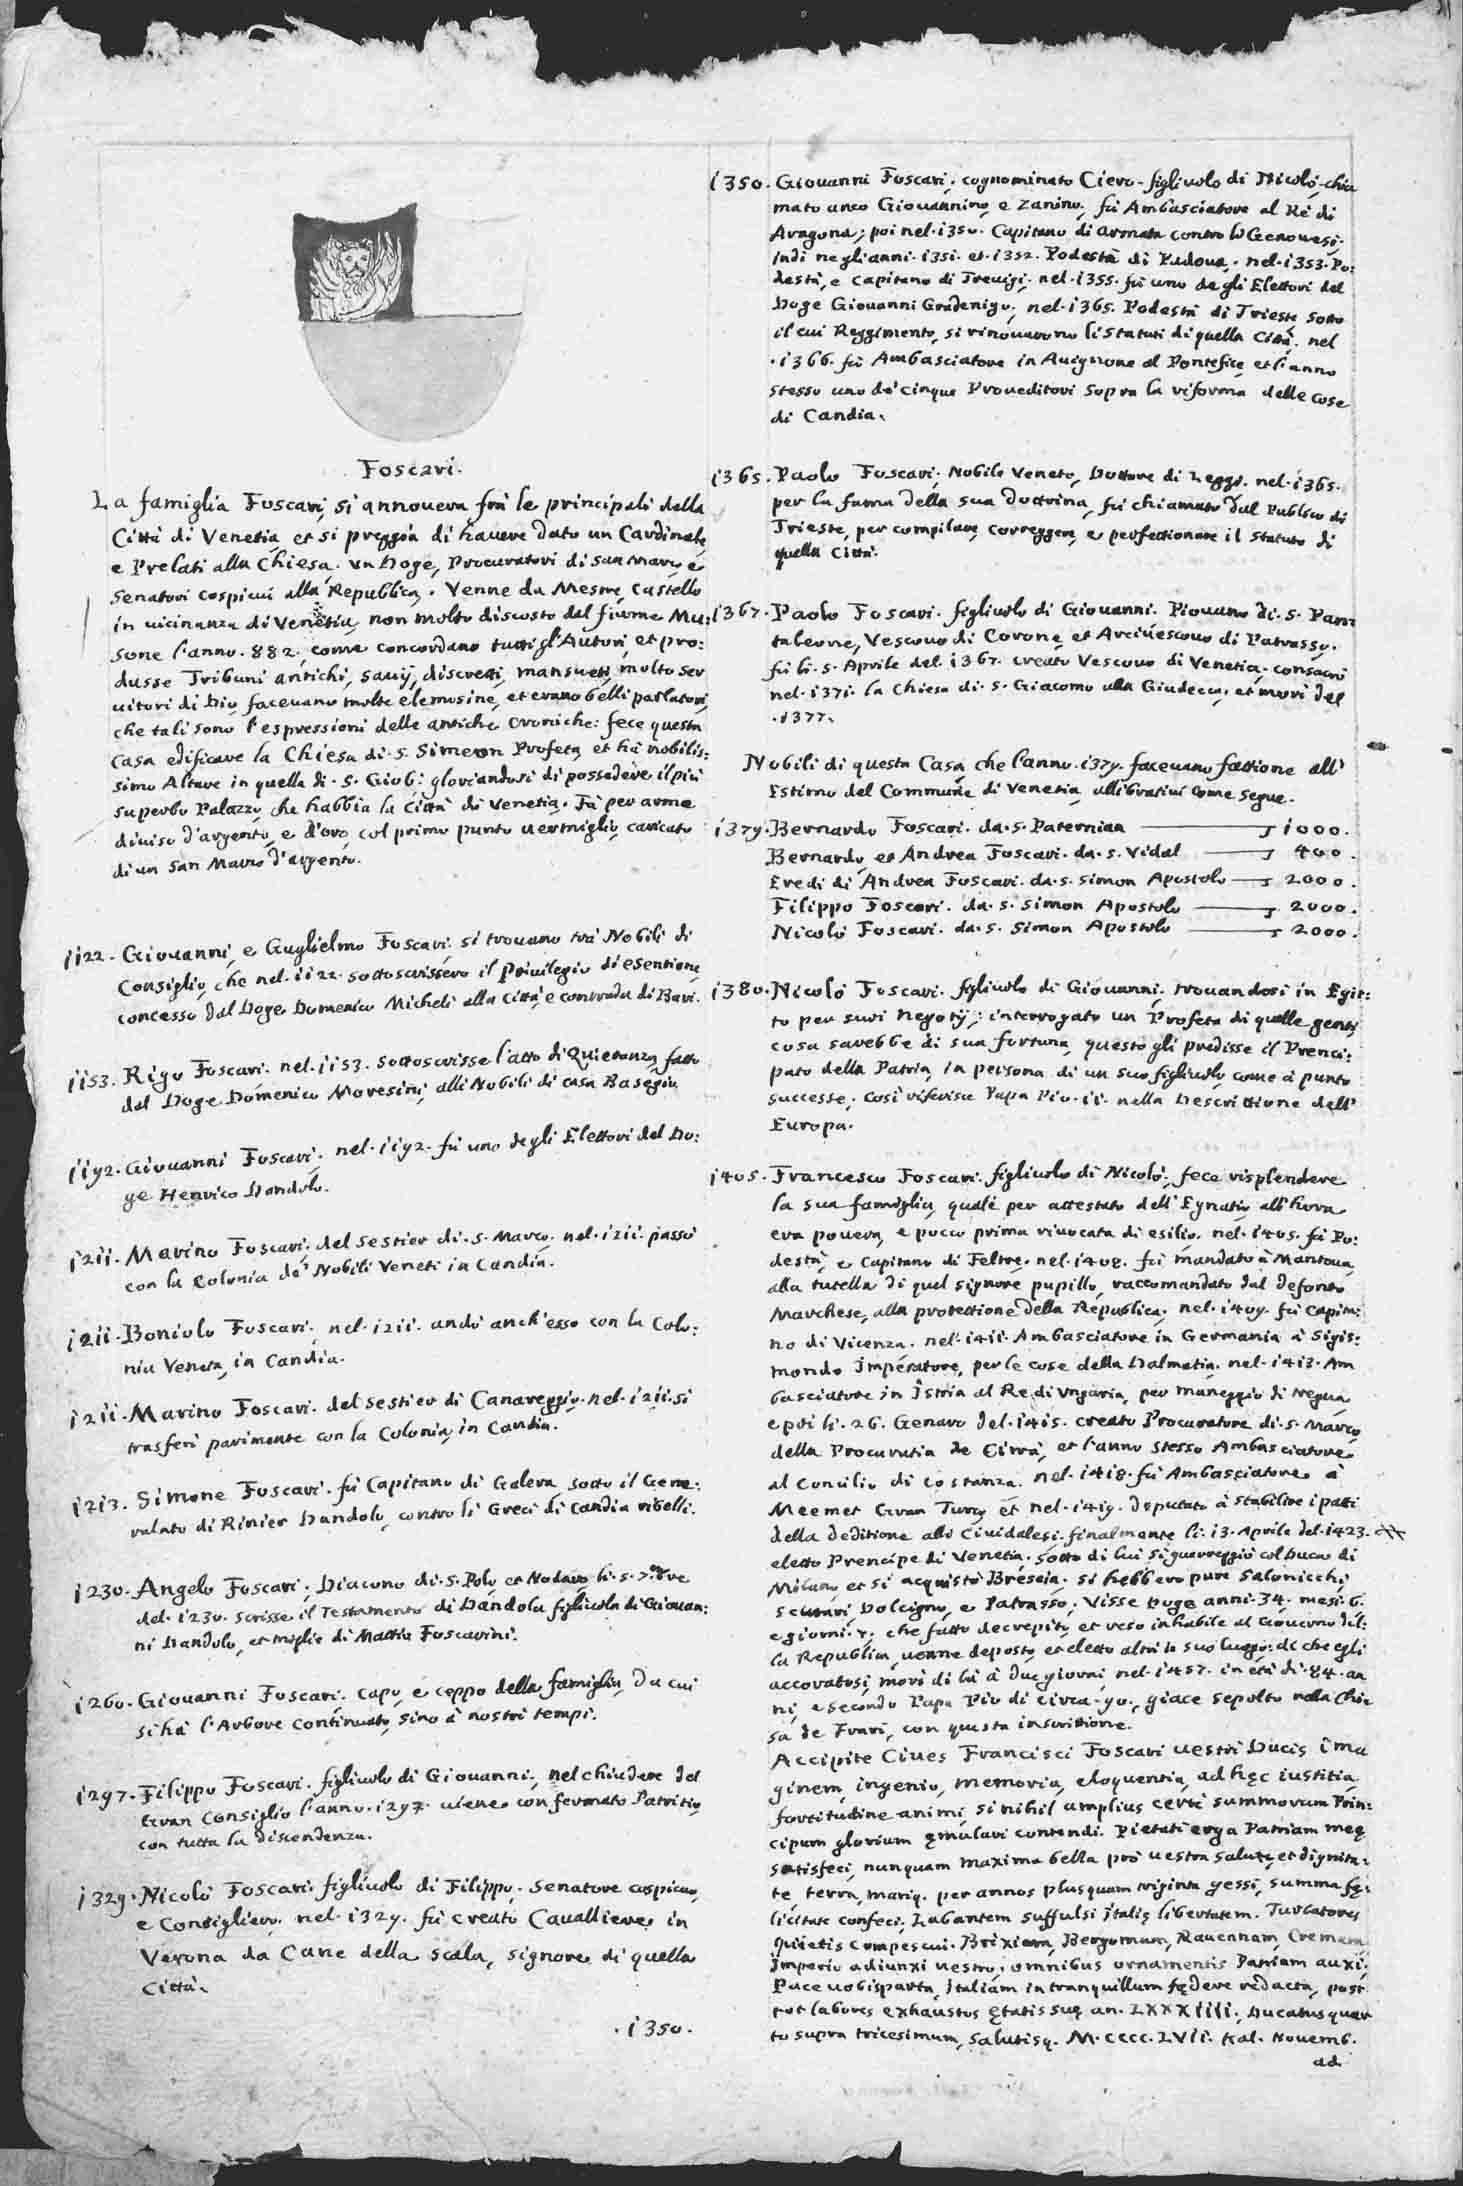 Foscari.
La famiglia Foscari, si annovera frà le principali della
Città di Venetia, et si preggia di havere dato un Cardinale,
e Prelati alla Chiesa, un Doge, Procuratori di San Marco, e
Senatori cospicui alla Republica. Venne da Mestre, Castello
in vicinanza di Venetia, non molto discosto dal fiume Mu:
sone l'anno. 882, come concordano tutti gl'Autori, et pro:
dusse Tribuni antichi, savij, discretti, mansueti, molto ser
vitori di Dio, facevano molte elemosine, et erano belli parlatori,
che tali sono l'espressioni delle antiche croniche: fece questa
casa edificare la Chiesa di. S. Simeon Profeta, et hà nobilis:
simo Altare in quella di. S. Giob: gloriandosi di possedere il più
superbo Palazzo, che habbia la città di Venetia. Fà per arma
diviso d'argento, e d'oro, col primo punto vermiglio, caricato
di un San Marco d'argento.
1122. Giovanni, e Guglielmo Foscari. si trovano trà Nobili di
Consiglio, che nel. 1122. sottoscrissero il Privilegio di esentione,
concesso dal Doge Domenico Micheli alla città, e contrada di Bari.
1153. Rigo Foscari. nel. 1153. sottoscrisse l'atto di Quietanza, fatto
dal Doge Domenico Moresini, alli Nobili di casa Basegio.
1192. Giovanni Foscari. nel. 1192. fù uno degli Elettori del Do:
ge Henrico Dandolo.
1211. Marino Foscari, del sestier di. S. Marco. nel. 1211. passò
con la Colonia de' Nobili Veneti in Candia.
1211. Boniolo Foscari. nel. 1211. andò anch'esso con la Colo:
nia Veneta, in Candia.
1211. Marino Foscari. del sestier di Canareggio. nel. 1211. si
trasferì parimente con la Colonia, in Candia.
1213. Simone Foscari. fù Capitano di Galera, sotto il Gene:
ralato di Rinier Dandolo, contro li Greci di Candia ribelli.
1230. Angelo Foscari, Diacono di. S. Polo, et Nodaro. li. 5. 7.bre
del. 1230. scrisse il Testamento di Dandola figliuola di Giovan:
ni Dandolo, et moglie di Mattio Foscarini.
1260. Giovanni Foscari. capo, e ceppo della famiglia, da cui
si hà l'Arbore continuato, sino à nostri tempi.
1297. Filippo Foscari. figliuolo di Giovanni, nel chiudere del
Gran Consiglio l'anno. 1297. viene confermato Patritio,
con tutta la discendenza.
1329. Nicolò Foscari. figliuolo di Filippo. Senatore cospicuo,
e Consigliero. nel. 1329. fù creato Cavalliere, in
Verona da Cane della Scala, signore di quella
Città.
. 1350.
1350. Giovanni Foscari. cognominato Ciero. figliuolo di Nicolò, chia
mato anco Giovannino, e Zanino, fù Ambasciatore al Rè di
Aragona; poi nel. 1350. Capitano di armata contro li Genovesi.
indi negl'anni. 1351. et. 1352. Podestà di Padova. nel. 1353. Po:
destà, e Capitano di Trevigi. nel. 1355. fù uno degli Elettori del
Doge Giovanni Gradenigo, nel. 1365. Podestà di Trieste sotto
il cui Reggimento, si rinovarono li statuti di quella Città. nel
. 1366. fù Ambasciatore in Avignone al Pontefice, et l'anno
stesso uno de' cinque Proveditori sopra la riforma delle cose
di Candia.
1365. Paolo Foscari. Nobile Veneto, Dottore di Leggi. nel. 1365.
per la fama della sua dottrina, fù chiamato dal Publico di
Trieste, per compilare, correggere, e perfettionare il statuto di
quella Città.
1367. Paolo Foscari. figliuolo di Giovanni. Piovano di. S. Pan:
taleone, Vescovo di Corone, et Arcivescovo di Patrasso.
fù li. 5. Aprile del. 1367. creato Vescovo di Venetia. consacrò
nel. 1371. la Chiesa di. S. Giacomo alla Giudecca, et morì del
. 1377.
Nobili di questa Casa, che l'anno. 1379. facevano fattione all'
Estimo del Commune di Venetia, allibrativi come segue.
1379. Bernardo Foscari. da. S. Paternian 1000.
Bernardo, et Andrea Foscari. da. S. Vidal 400.
Eredi di Andrea Foscari. da. S. Simon Apostolo 2000.
Filippo Foscari. da. S. Simon Apostolo 2000.
Nicolò Foscari. da. S. Simon Apostolo 2000.
1380. Nicolò Foscari. figliuolo di Giovanni, trovandosi in Egit:
to per suoi negotij; interrogato un Profeta di quelle genti,
cosa sarebbe di sua fortuna, questo gli predisse il Prenci:
pato della Patria, in persona di un suo figliuolo, come à punto
successe, così riferisce Papa Pio. II. nella Descrittione dell'
Europa.
1405. Francesco Foscari. figliuolo di Nicolò, fece risplendere
la sua famiglia, quale per attestato dell'Egnatio all'hora
era povera, e pocco prima rivocata di esilio. nel. 1405. fù Po:
destà, e Capitano di Feltre. nel. 1408. fù mandato à Mantova,
alla tutella di quel signore pupillo, raccomandato dal defonto
Marchese, alla protettione della Republica. nel. 1409. fù Capita:
no di Vicenza. nel. 1411. Ambasciatore in Germania à Sigis:
mondo Imperatore, per le cose della Dalmatia. nel. 1413. Am
basciatore in Istria al Re di Ungaria, per maneggio di tregua,
e poi li. 26. Genaro del. 1415. creato Procuratore di. S. Marco,
della Procuratia de Citrà, et l'anno stesso Ambasciatore
al Concilio di Costanza. nel. 1418. fù Ambasciatore à
Meemet Gran Turco, et nel. 1419. deputato à stabilire i patti
della deditione alli Cividalesi. finalmente li. 13. Aprile del. 1423.
eletto Prencipe di Venetia, sotto di lui si guerreggiò col Duca di
Milano et si acquistò Brescia. si hebbero pure Salonicchi,
Scutari Dolcigno, e Patrasso. Visse Doge anni. 34. mesi. 6.
e giorni. che fatto decrepito, et reso inhabile al Governo del:
la Republica, venne deposto, et eletto altri in suo luogo: di che egli
accoratosi, morì di là à due giorni, nel. 1457. in età di. 84. an
ni, e secondo Papa Pio di circa. 90., giace sepolto nella Chie
sa de Frari, con questa inscrittione.
Accipite Cives Francisci Foscari vestri Ducis ima
ginem, ingenio, memoria, eloquentia, ad hęc iustitia,
fortitudine animi, si nihil amplius certè summorum Prin:
cipum gloriam ęmulari contendi. Pietati erga Patriam meę
satisfeci, nunquam maxima bella pro vestra salute, et dignita:
te, terra, mariq. per annos plusquam triginta gessi, summa fę:
licitate confeci. Labantem suffulsi Italię libertatem. Turbatores
quietis compescui. Brixiam, Bergomum, Ravennam, Cremam,
Imperio adiunxi vestro. omnibus ornamentis Patriam auxi.
Pace vobis parta, Italiam in tranquillum fędere redacta, post
tot labores exhaustos ętatis suę an. LXXXIIII. Ducatus quar
to supra tricesimum, salutisq. M. CCCC. LVII. Kal. Novemb.
ad